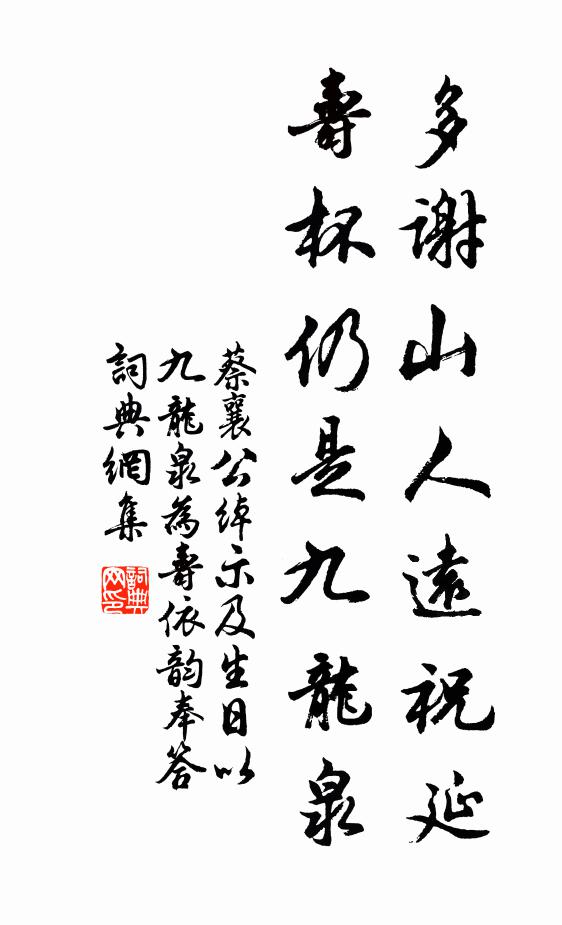 多謝山人遠祝延
壽杯仍是九龍泉
蔡襄公綽示及生日以
九龍泉為壽依韵奉答
詞典網集
詞典
网印